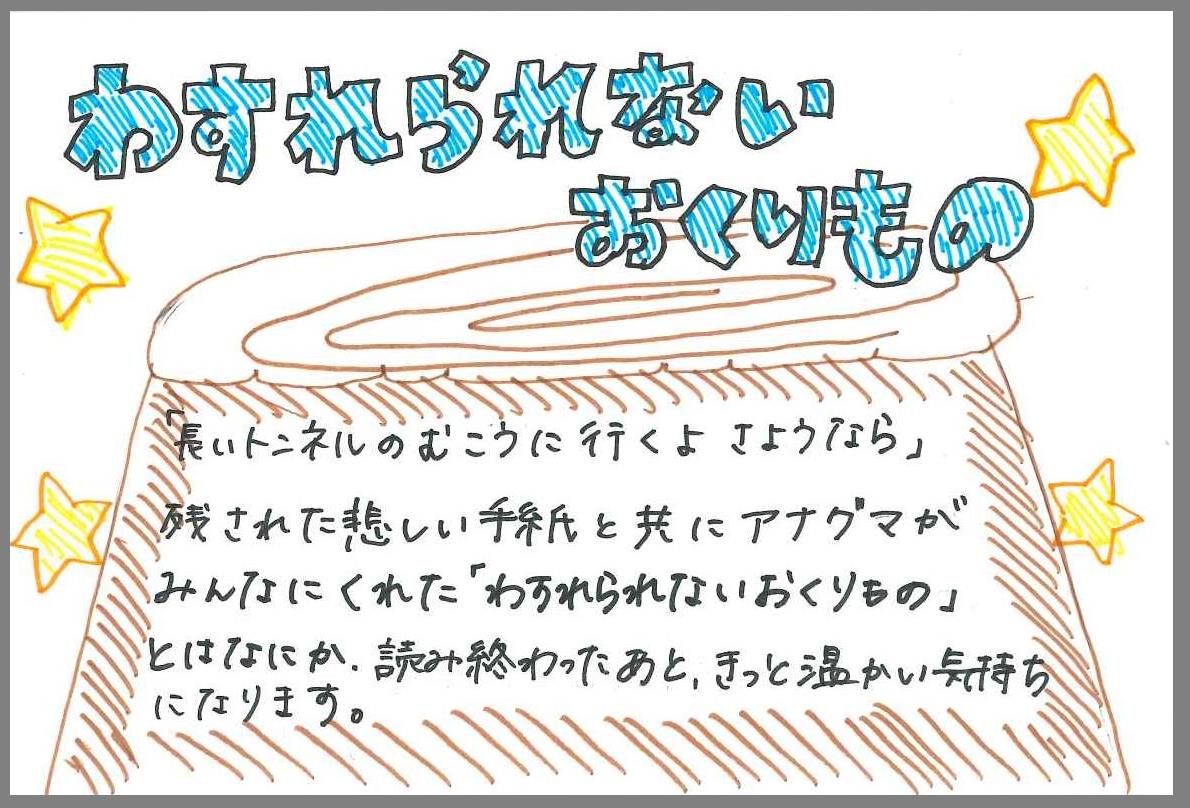 わすれられない
おくりもの
「長いトンネルのむこうに行くよ さようなら」
残された悲しい手紙と共にアナグマが
みんなにくれた「わすれられないおくりもの」
とはなにか、読み終わったあと、きっと温かい気持ち
になります。